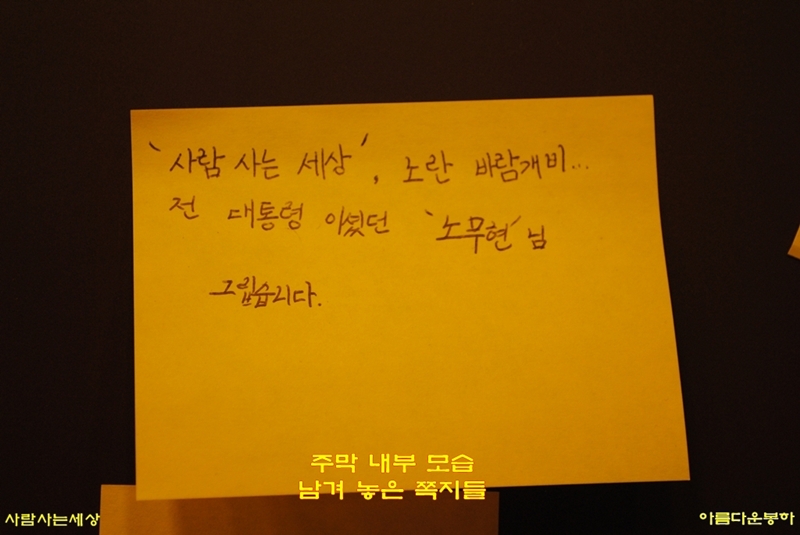 '사람 사는 세상', 노란 바람개비...
전 대통령 이셨던 '노무현'님
그립습니다.
주막 내부 모습
남겨 놓은 쪽지들
사람사는세상
아름다운봉하